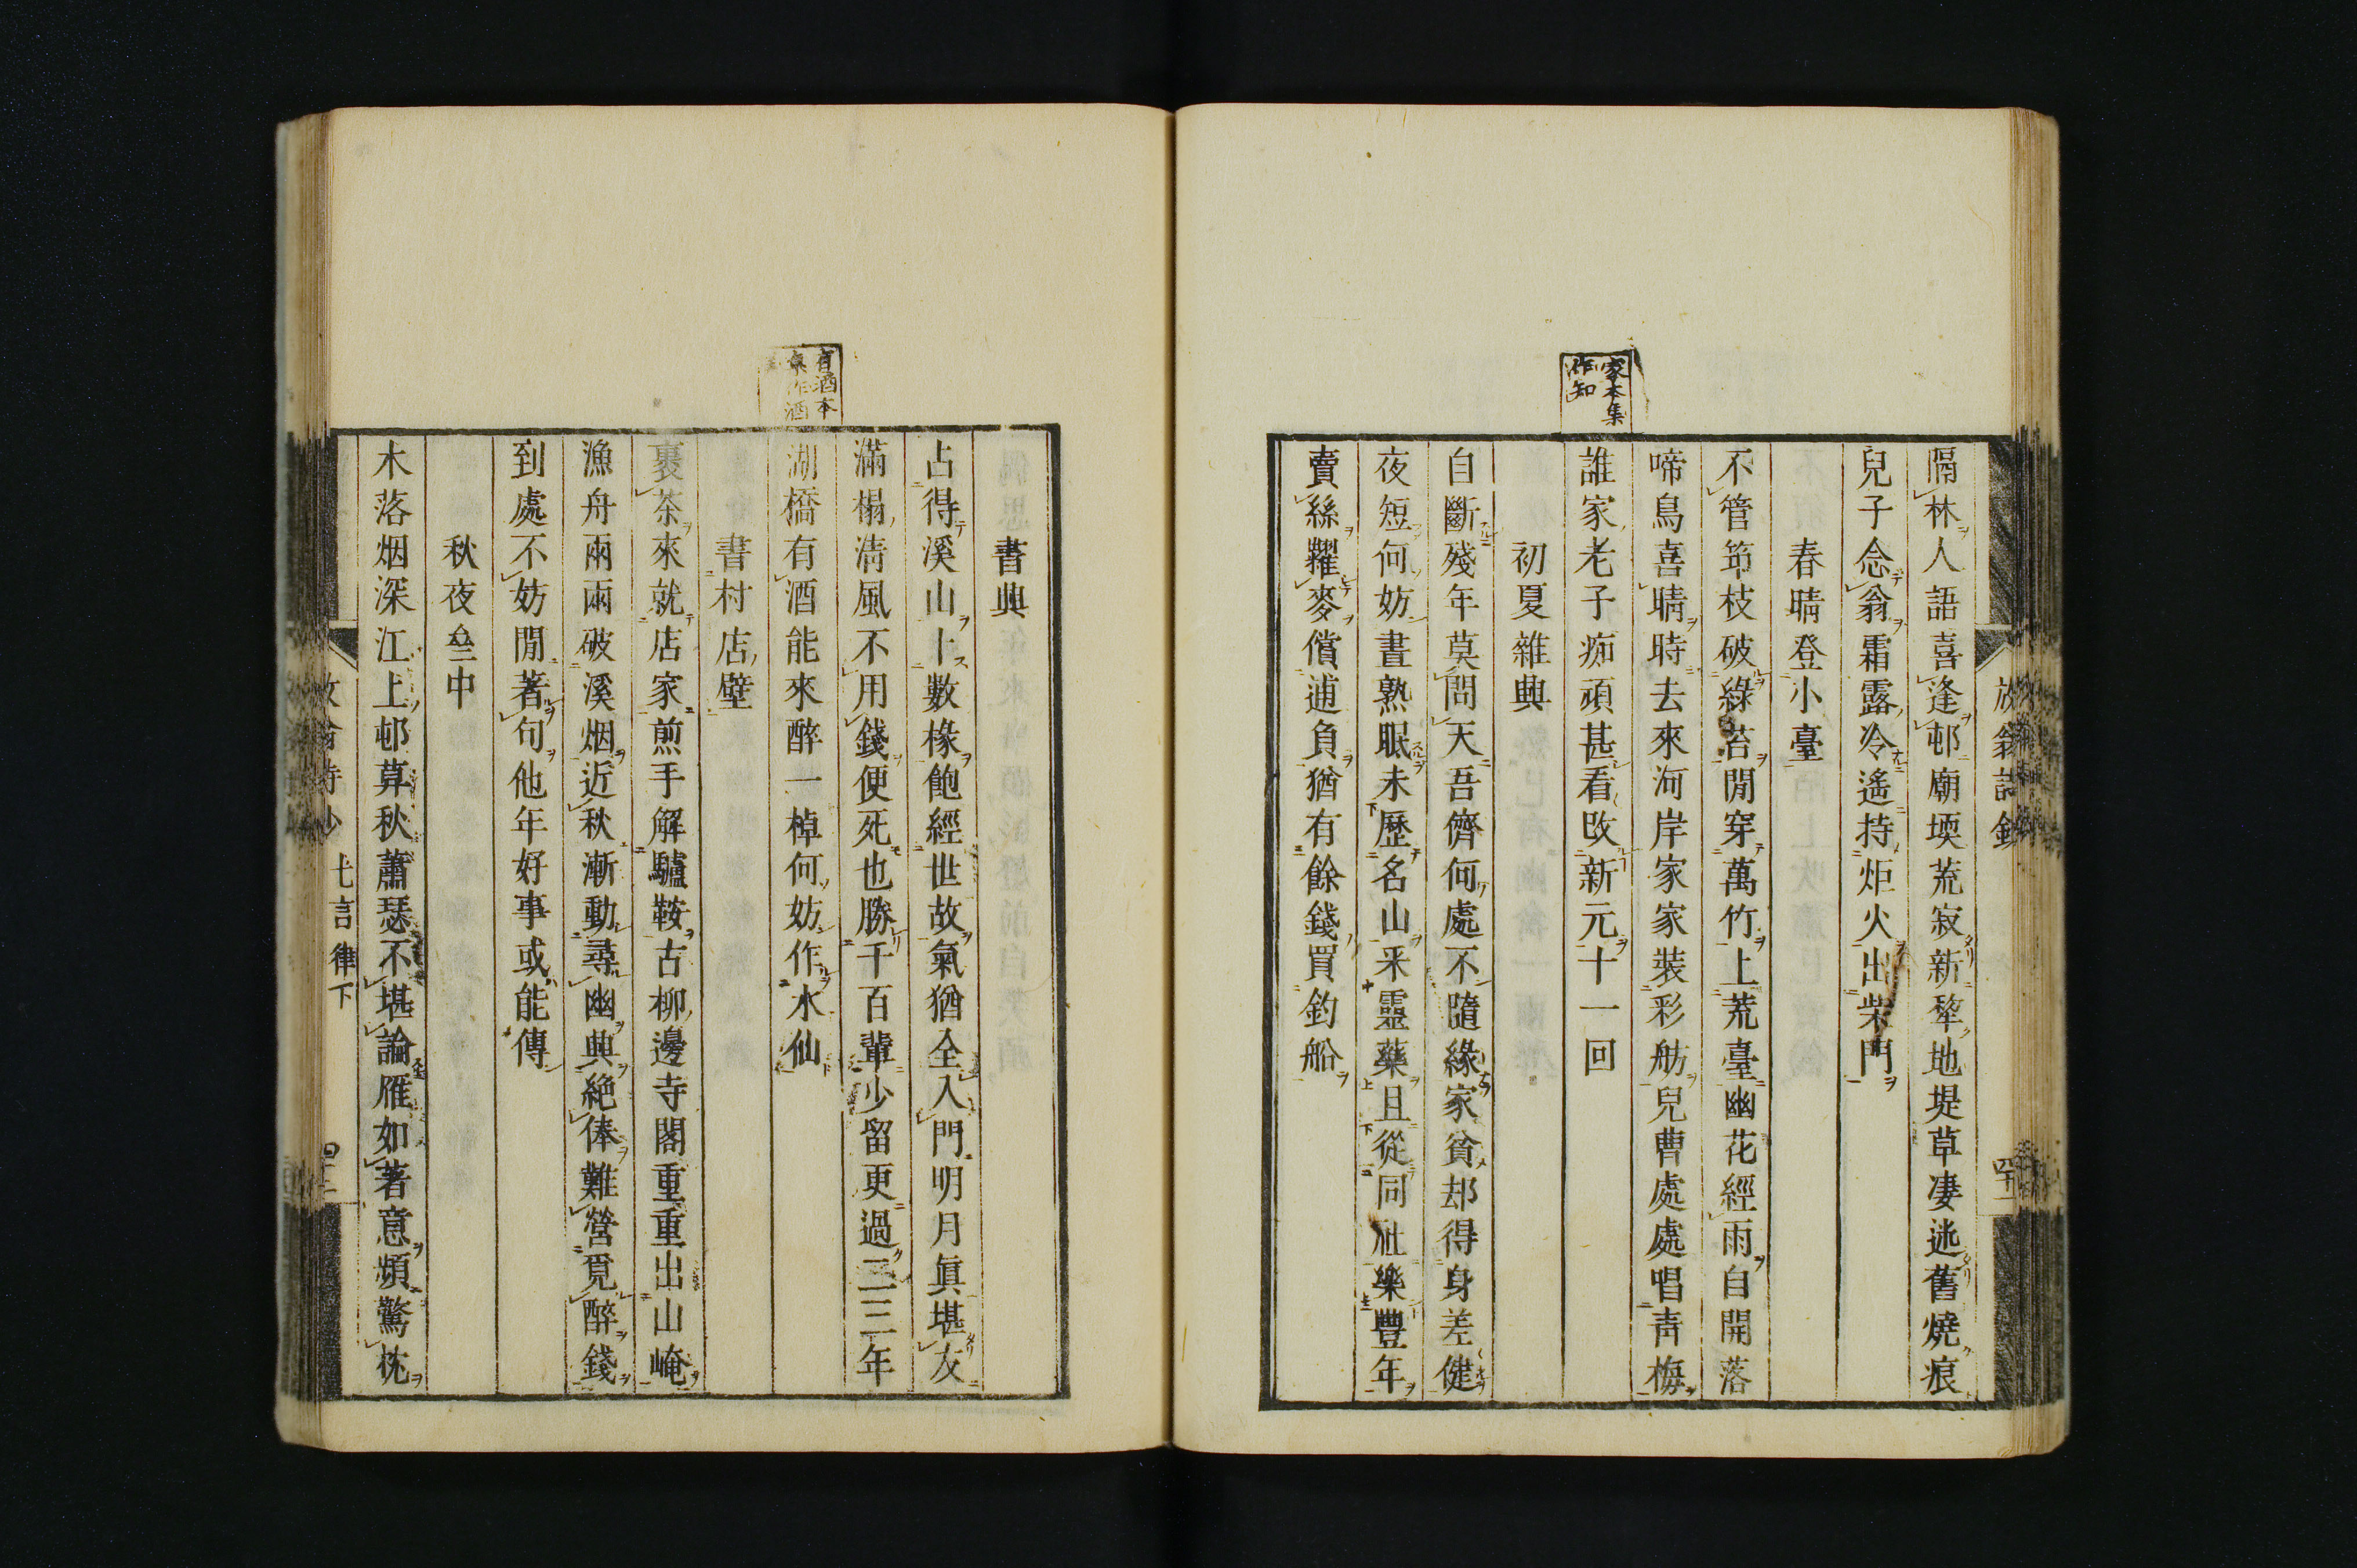 家本集
作知
隔林人語喜逢邨廟堧荒寂新犂地堤草凄迷舊燒痕
兒子念翁霜露冷遙持炬火出柴門
春晴登小臺
不管笻枝破綠苔閒穿萬竹上荒臺幽花經雨自開落
啼鳥喜晴時去來河岸家家裝彩舫兒曹處處唱靑梅
誰家老子痴頑甚看改新元十一回
初夏雜興
自斷殘年莫問天吾儕何處不隨緣家貧却得身差健
夜短何妨晝熟眠未歷名山采靈藥且從同社樂豐年
賣絲糶麥償逋負猶有餘錢買釣船
有酒本
集作酒
書興
占得溪山十數椽飽經世故氣猶全入門明月眞堪友
滿榻淸風不用錢便死也勝千百輩少留更過二三年
湖橋有酒能來醉一棹何妨作水仙
書村店壁
裹茶來就店家煎手解驢鞍古柳邊寺閣重重出山崦
漁舟兩兩破溪烟近秋漸動尋幽興絶俸難營覓醉錢
到處不妨閒著句他年好事或能傳
秋夜坐中
木落烟深江上邨草秋蕭瑟不堪論雁如著意頻驚枕
七言律下